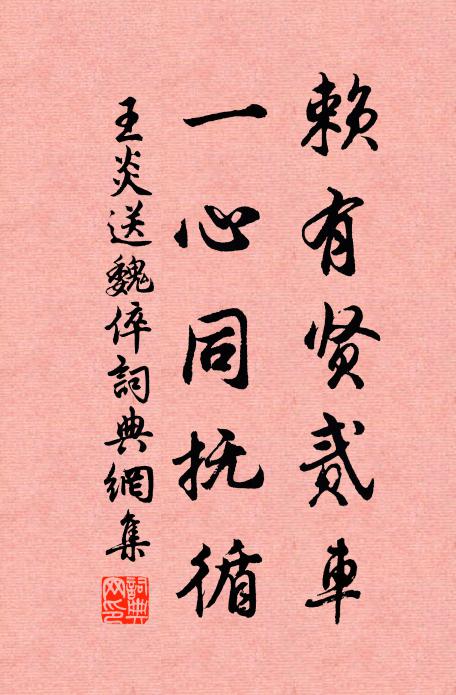 赖有贤贰车
一心同抚循
王炎送魏倅詞典網集
詞典網印